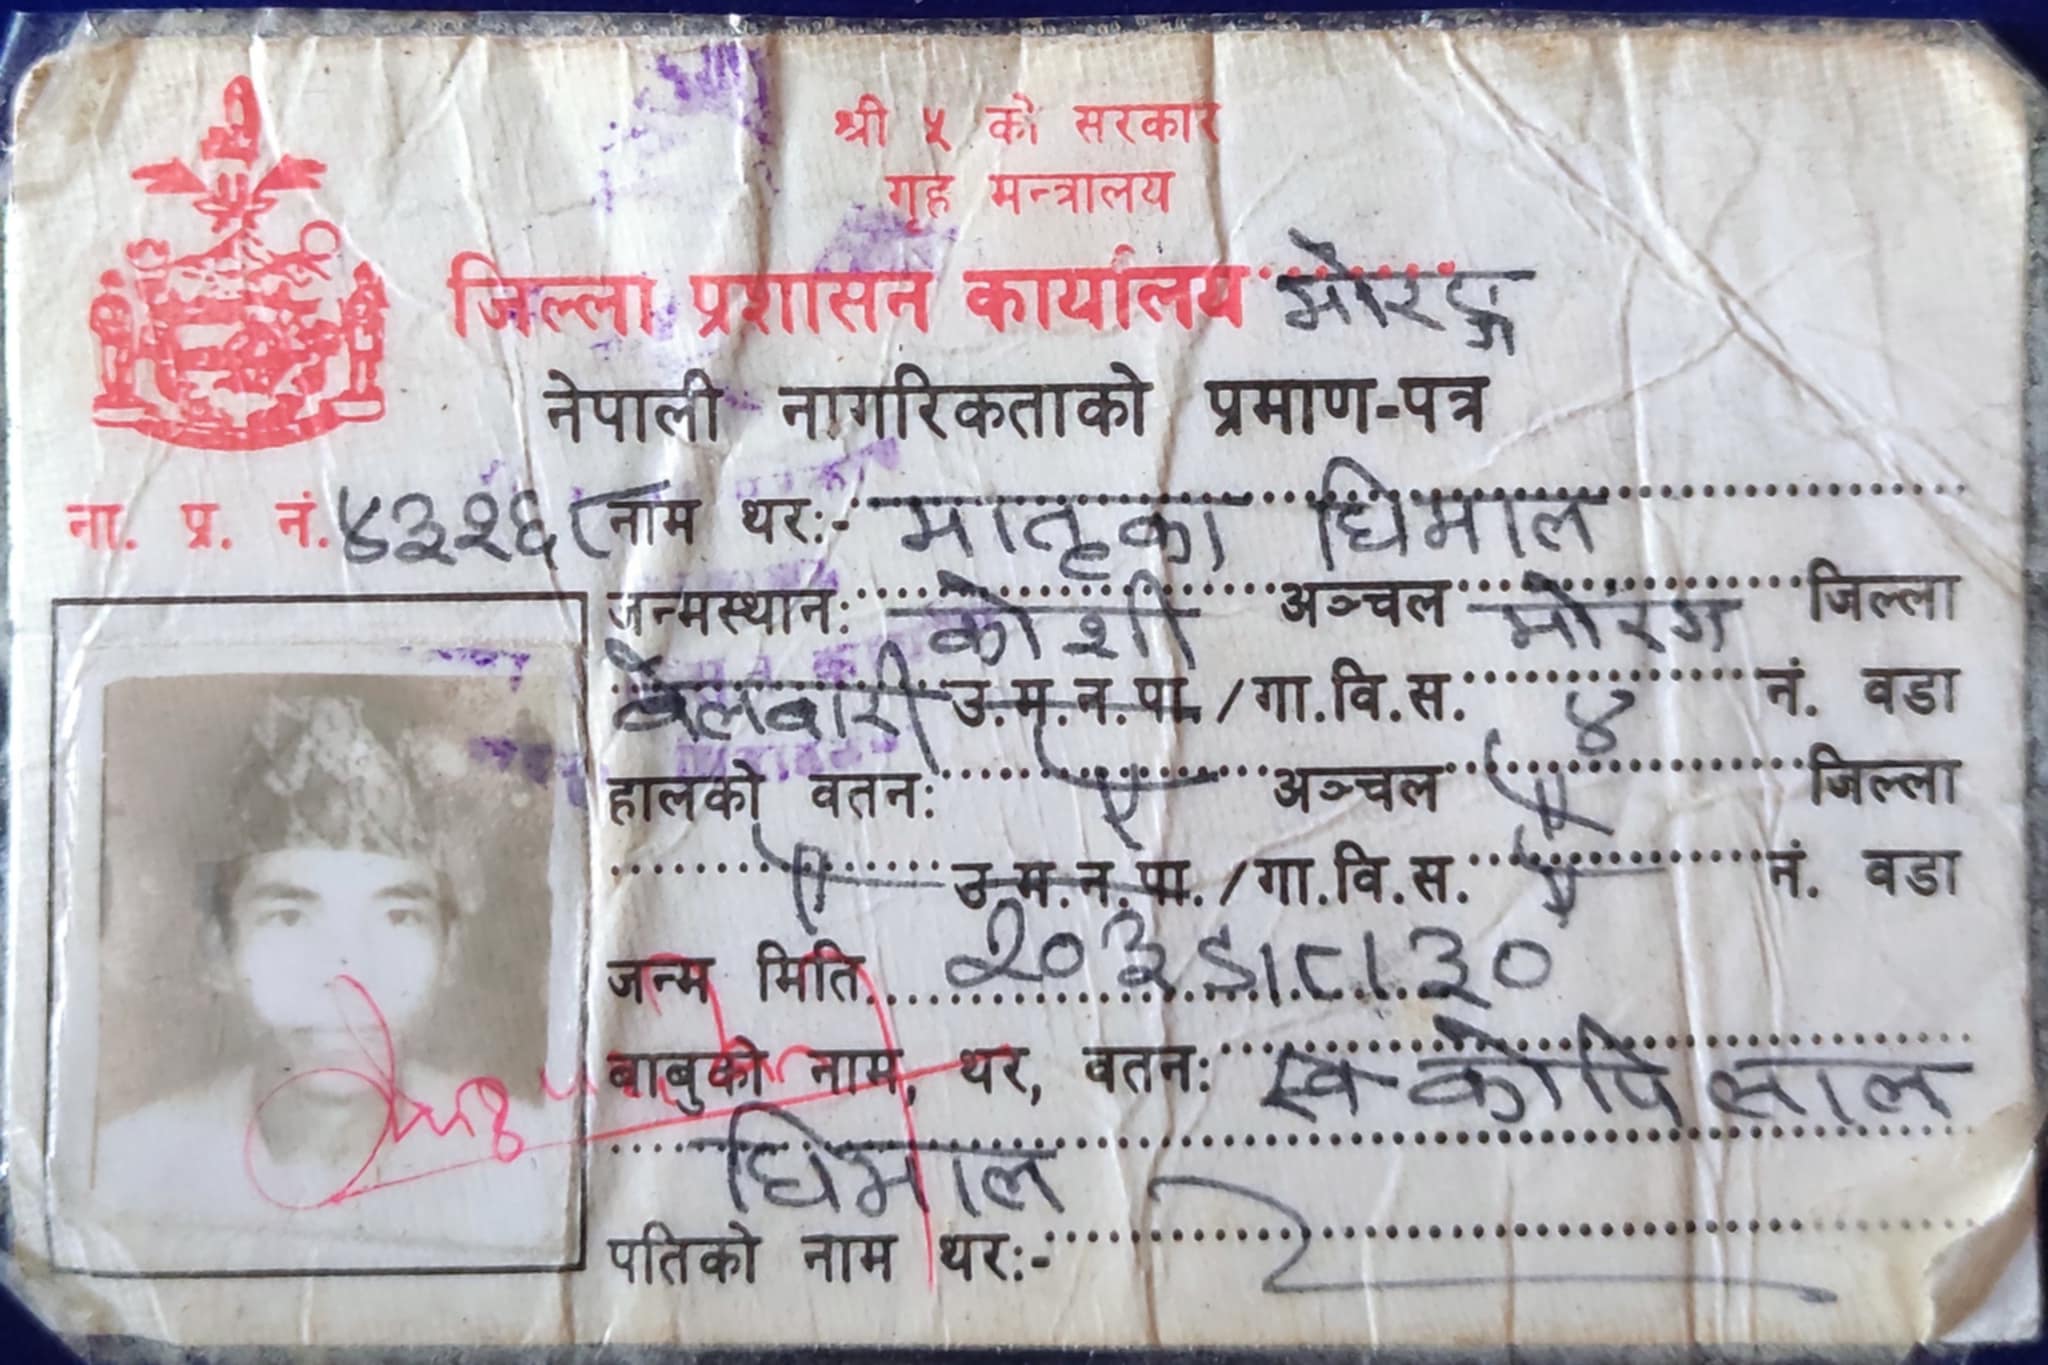 श्री ५ को सरकार
गृह मन्त्रालय
जिल्ला प्रशासन कार्यालय मोरङ्ग
नेपाली नागरिकताको प्रमाण-पत्र
ना. प्र. नं. ४३२६८ नाम थर:- मातृका घिमाल
जन्मस्थान: कोशी अञ्चल मोरंग जिल्ला
बेलबारी उ.म.न.पा./गा.वि.स. ४ नं. वडा
हालको वतन: ऐ अञ्चल ऐ जिल्ला
ऐ उ.म.न.पा./गा.वि.स. ऐ नं. वडा
जन्म मिति २०३५।८।३०
बाबुको नाम, थर, वतन: स्व कोपिलाल
घिमाल
पतिको नाम थर:-